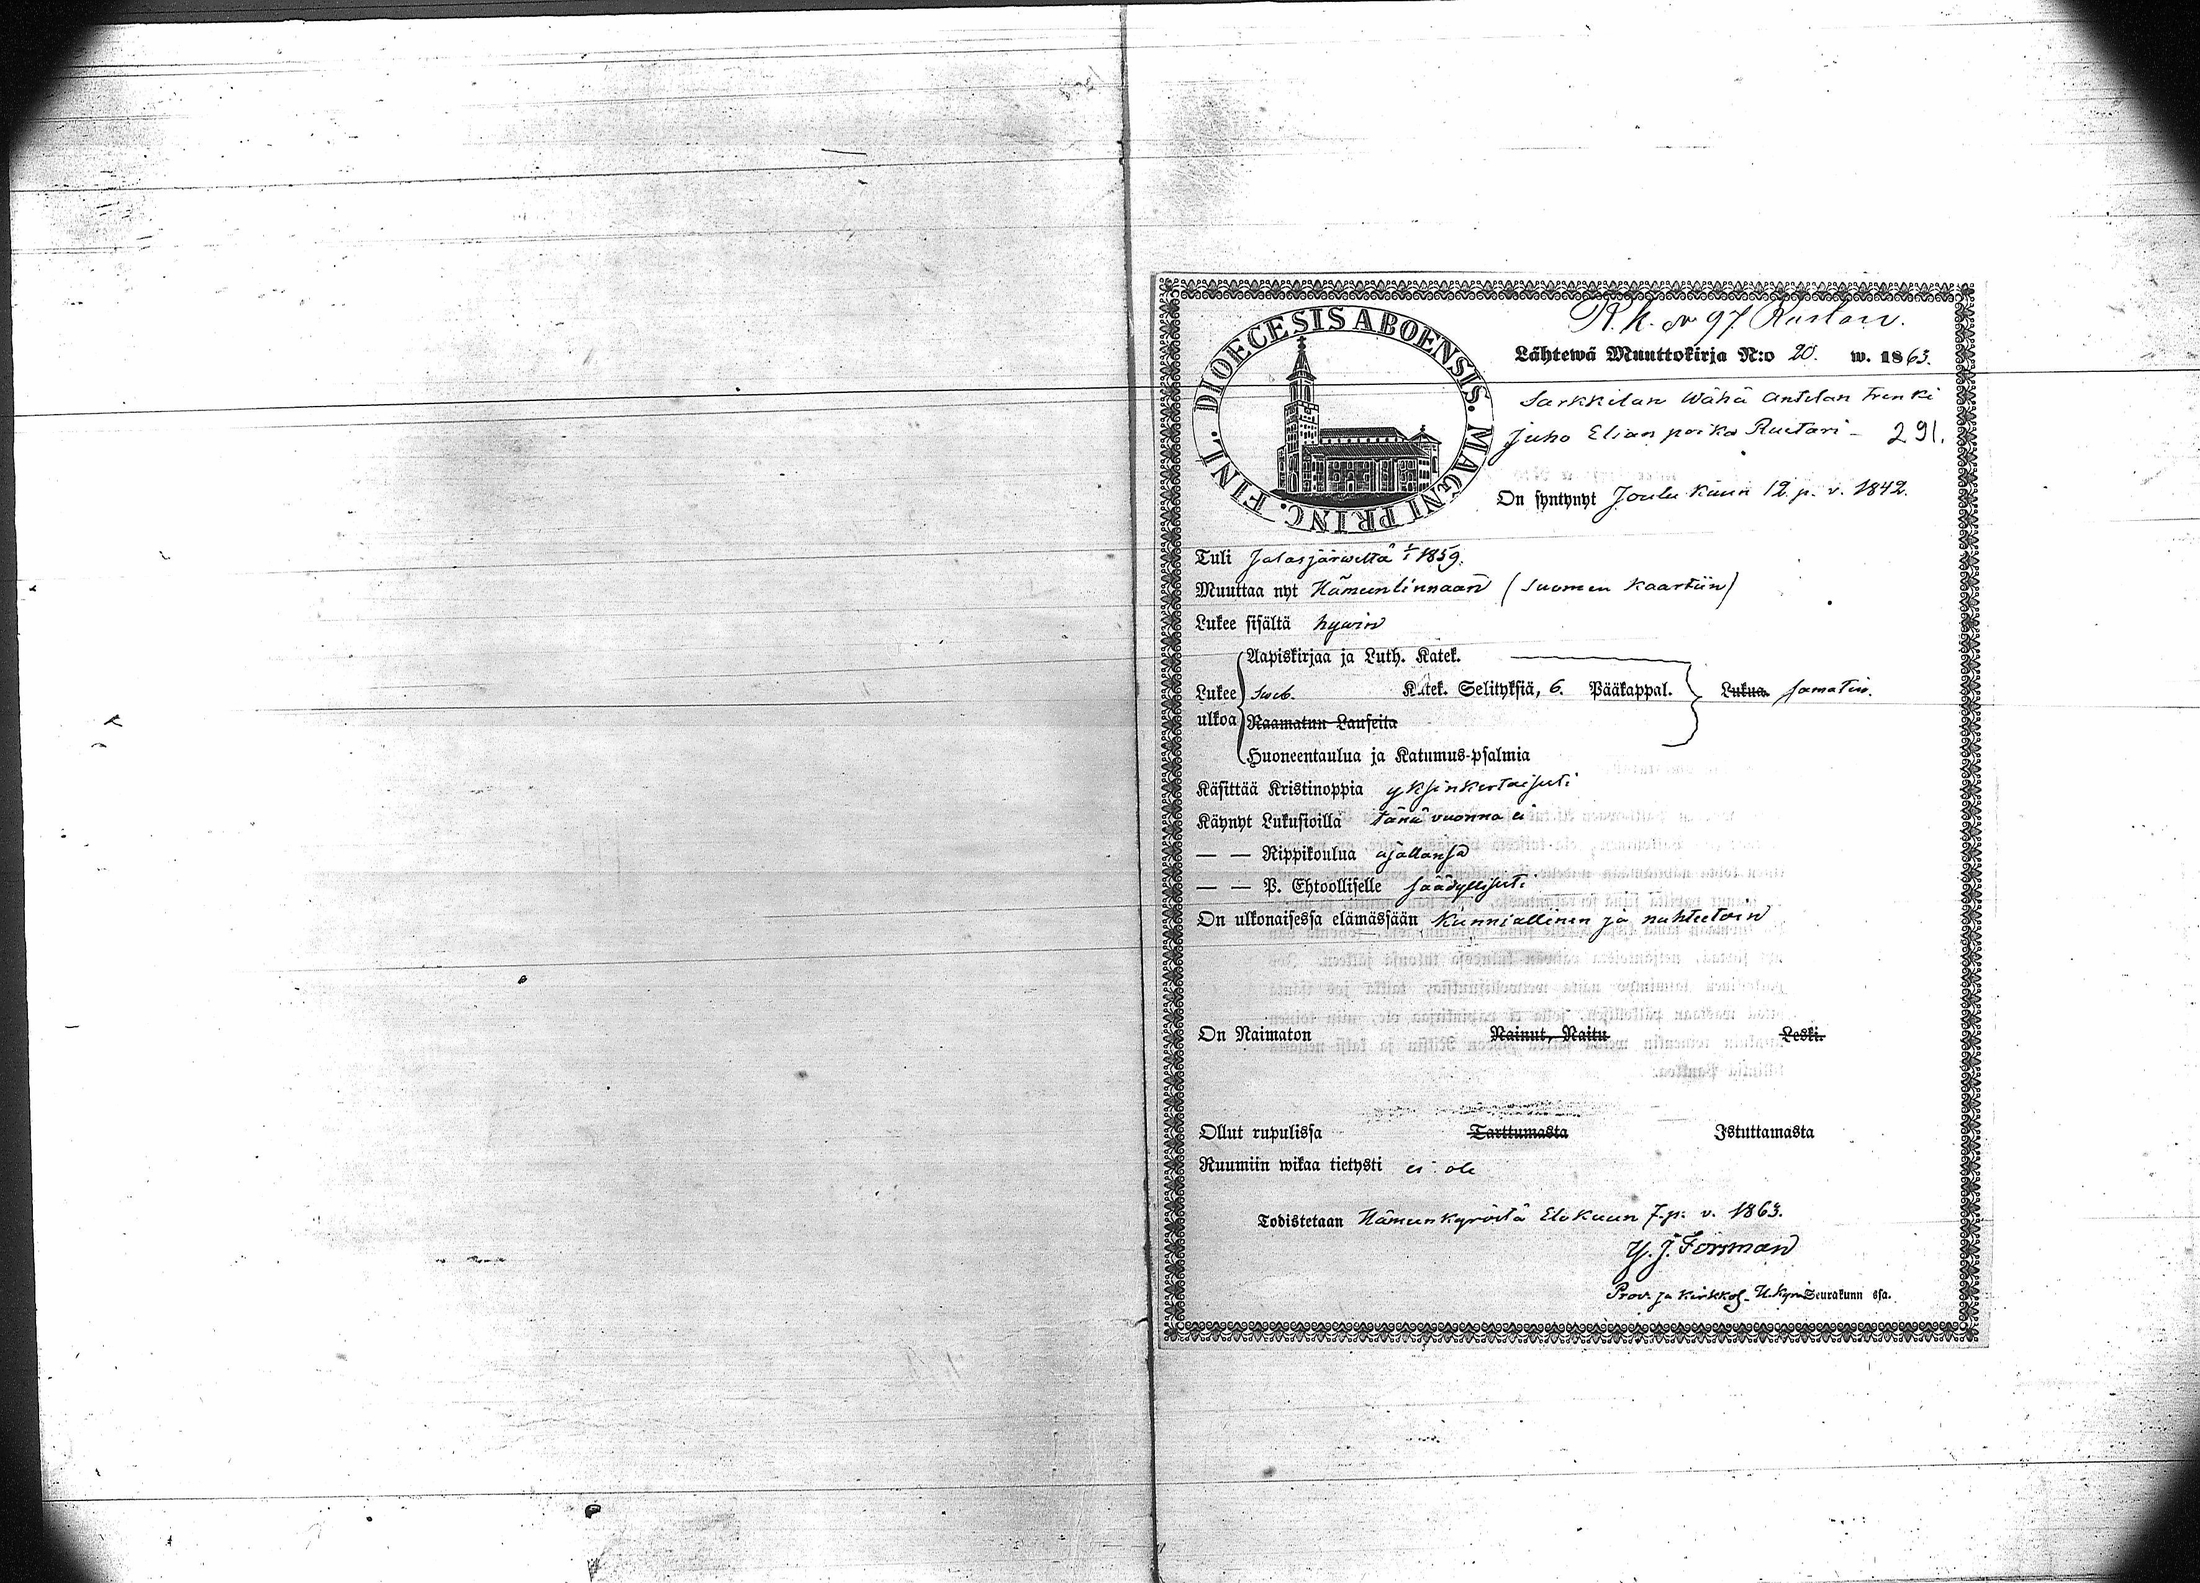 R. k. N 97 Rustari.
DIOECESIS ABOENSIS. MAGNI PRINC. FINL.
Lähtewä Muuttokirja N:o 20. w. 1863.
Sarkkilan Wähä Antilan trenki
Juho Elian poika Rustari - 291.
On syntynyt Joulu kuun 12 p. v. 1842.
Tuli Jalasjärweltä 1859.
Muuttaa nyt Hämeenlinnaan (Suomen kaartiin)
Lukee sisältä hywin
Aapiskirjaa ja Luth. Katek.
Lukee Sweb. Katek. Selityksiä, 6. Pääkappal. Lukua. samatin.
ulkoa Raamatun Lauseita
Huoneentaulua ja Katumus-psalmia
Käsittää Kristinoppia yksinkertaisesti
Käynyt Lukusioilla tänä vuonna ei
— — Rippikoulua ajallansa
— — P. Ehtoolliselle säädyllisesti
On ulkonaisessa elämässään kunniallinen ja nuhteetoin
On Naimaton Nainut, Naitu Leski.
Ollut rupulissa Tarttumasta Istuttamasta
Ruumiin wikaa tietysti ei ole
Todistetaan Hämeenkyröstä Elokuun 7. p. v. 1863.
Y. J. Forsman
Prov. ja kirkkoh. H.kyrö Seurakunn ssa.